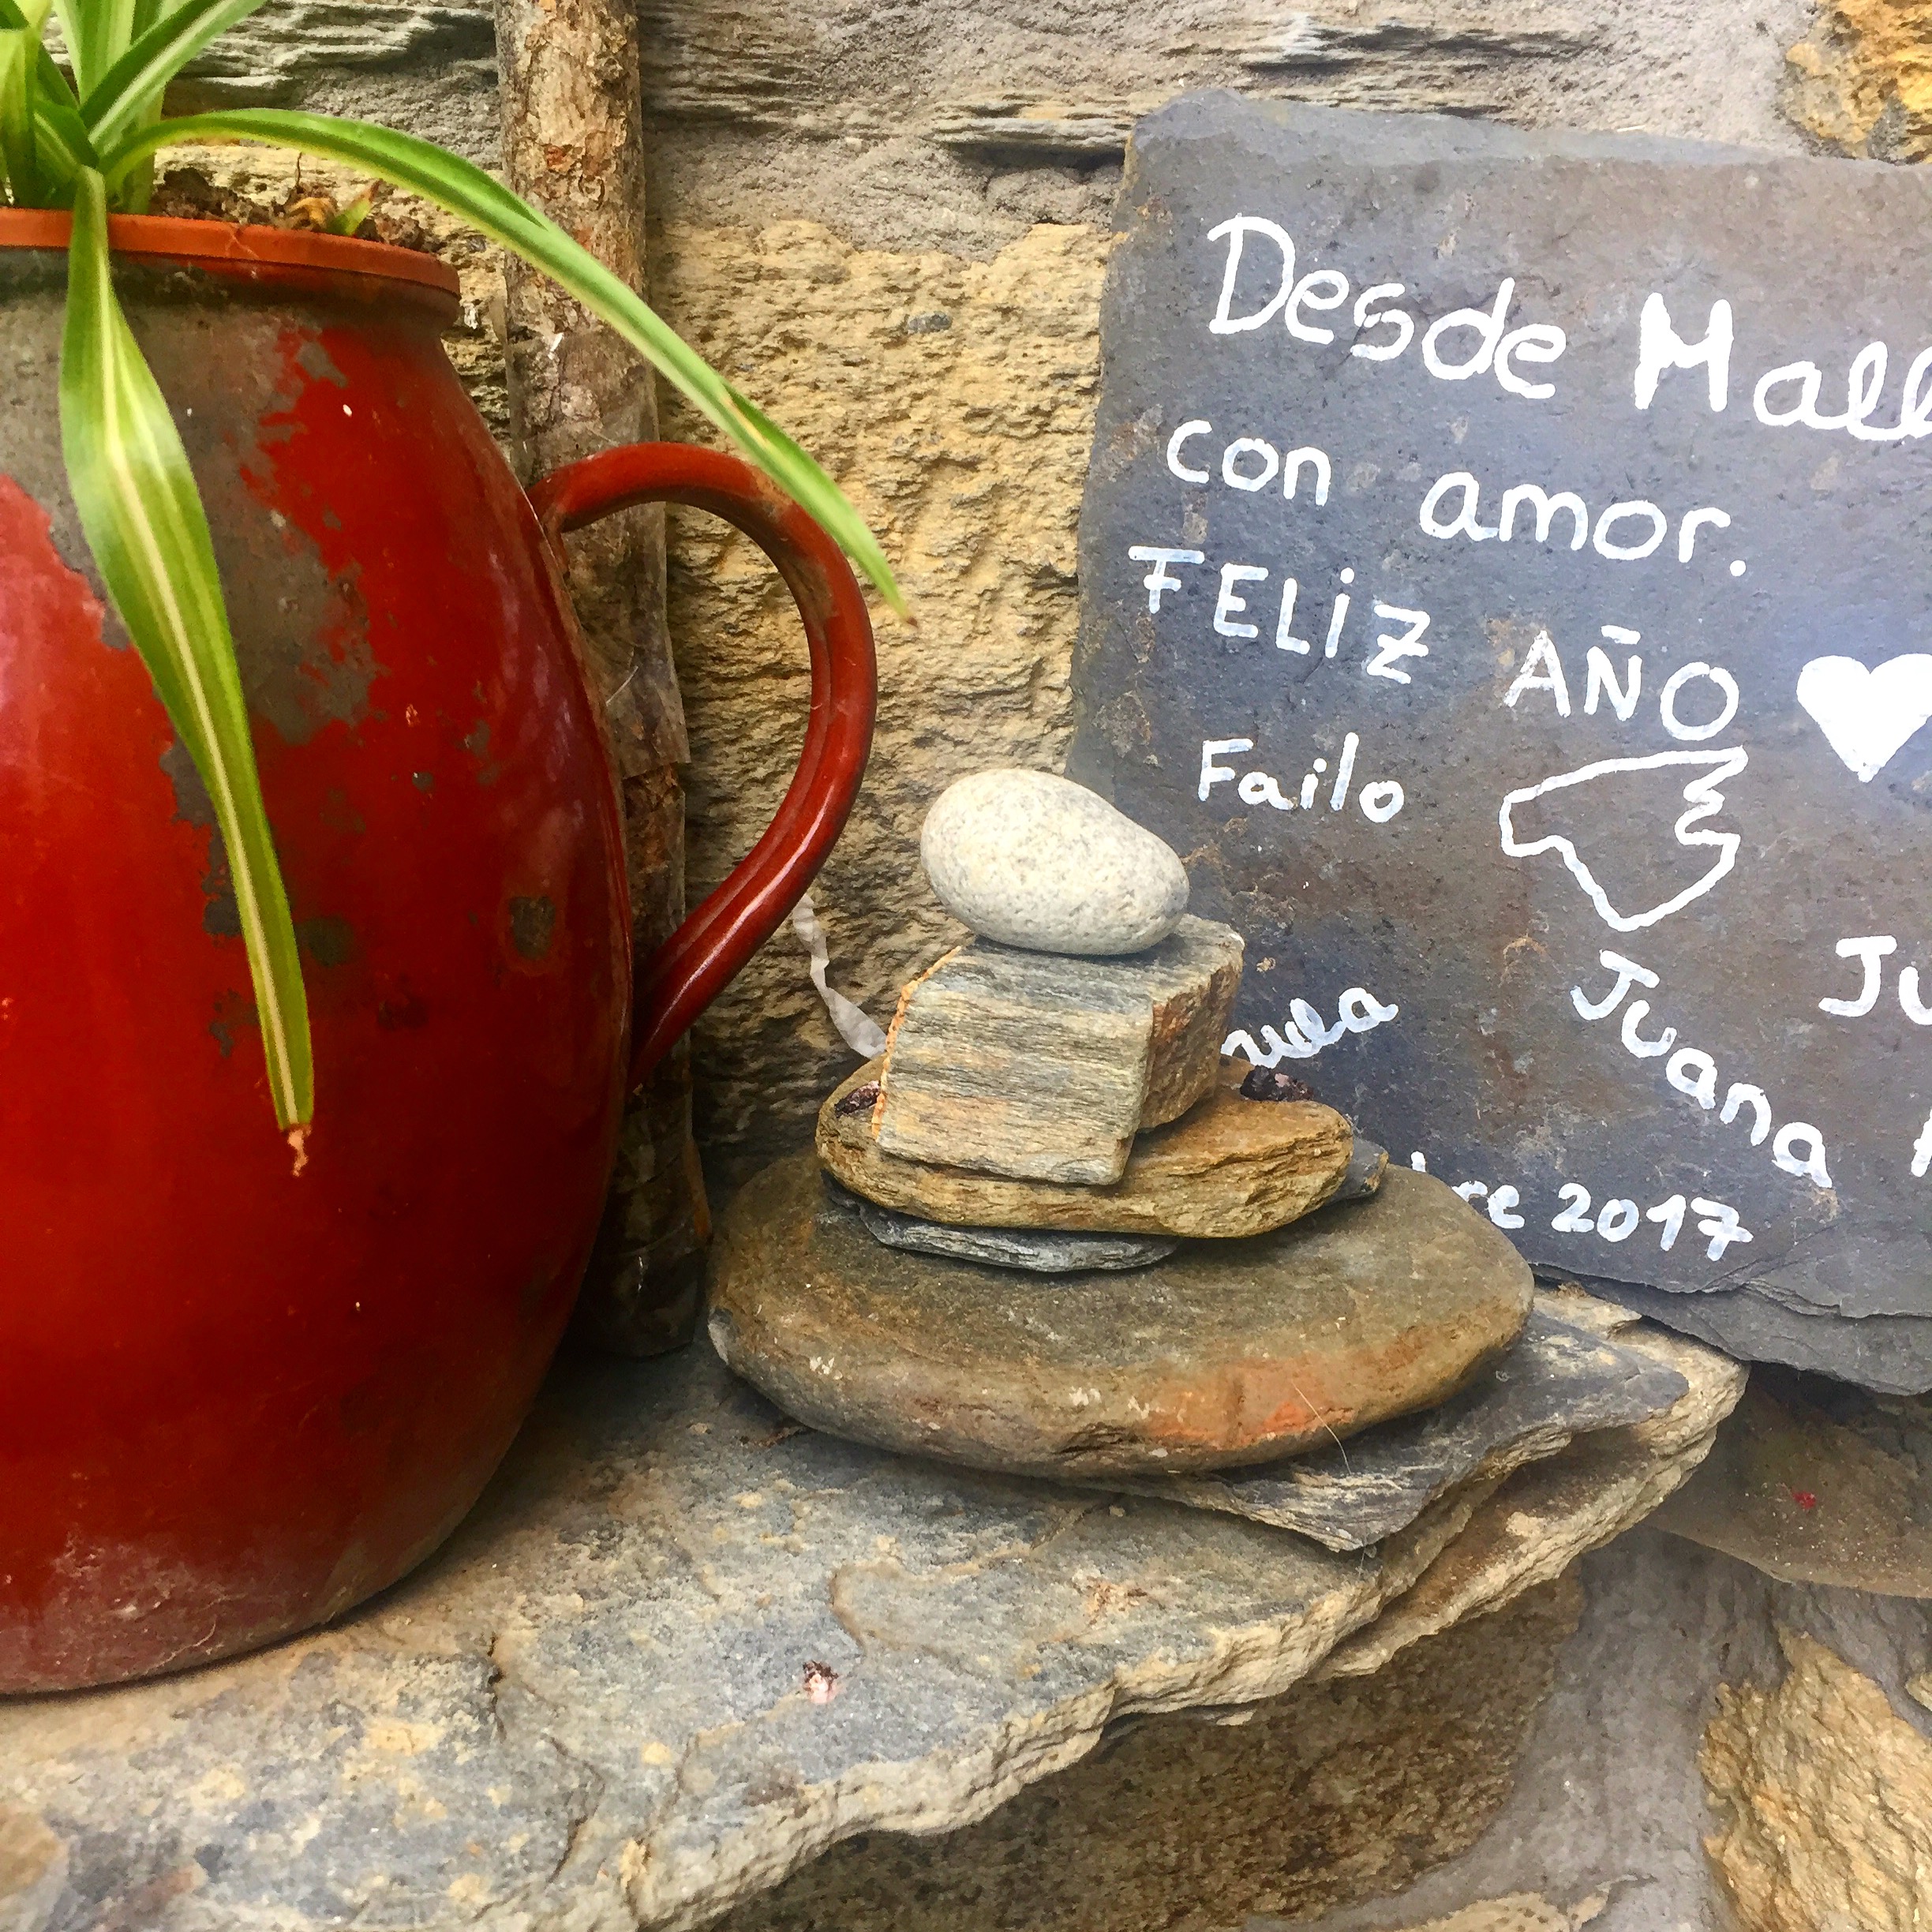 Desde Mall
con amor.
FELiZ AÑO
Failo
Juana
2017